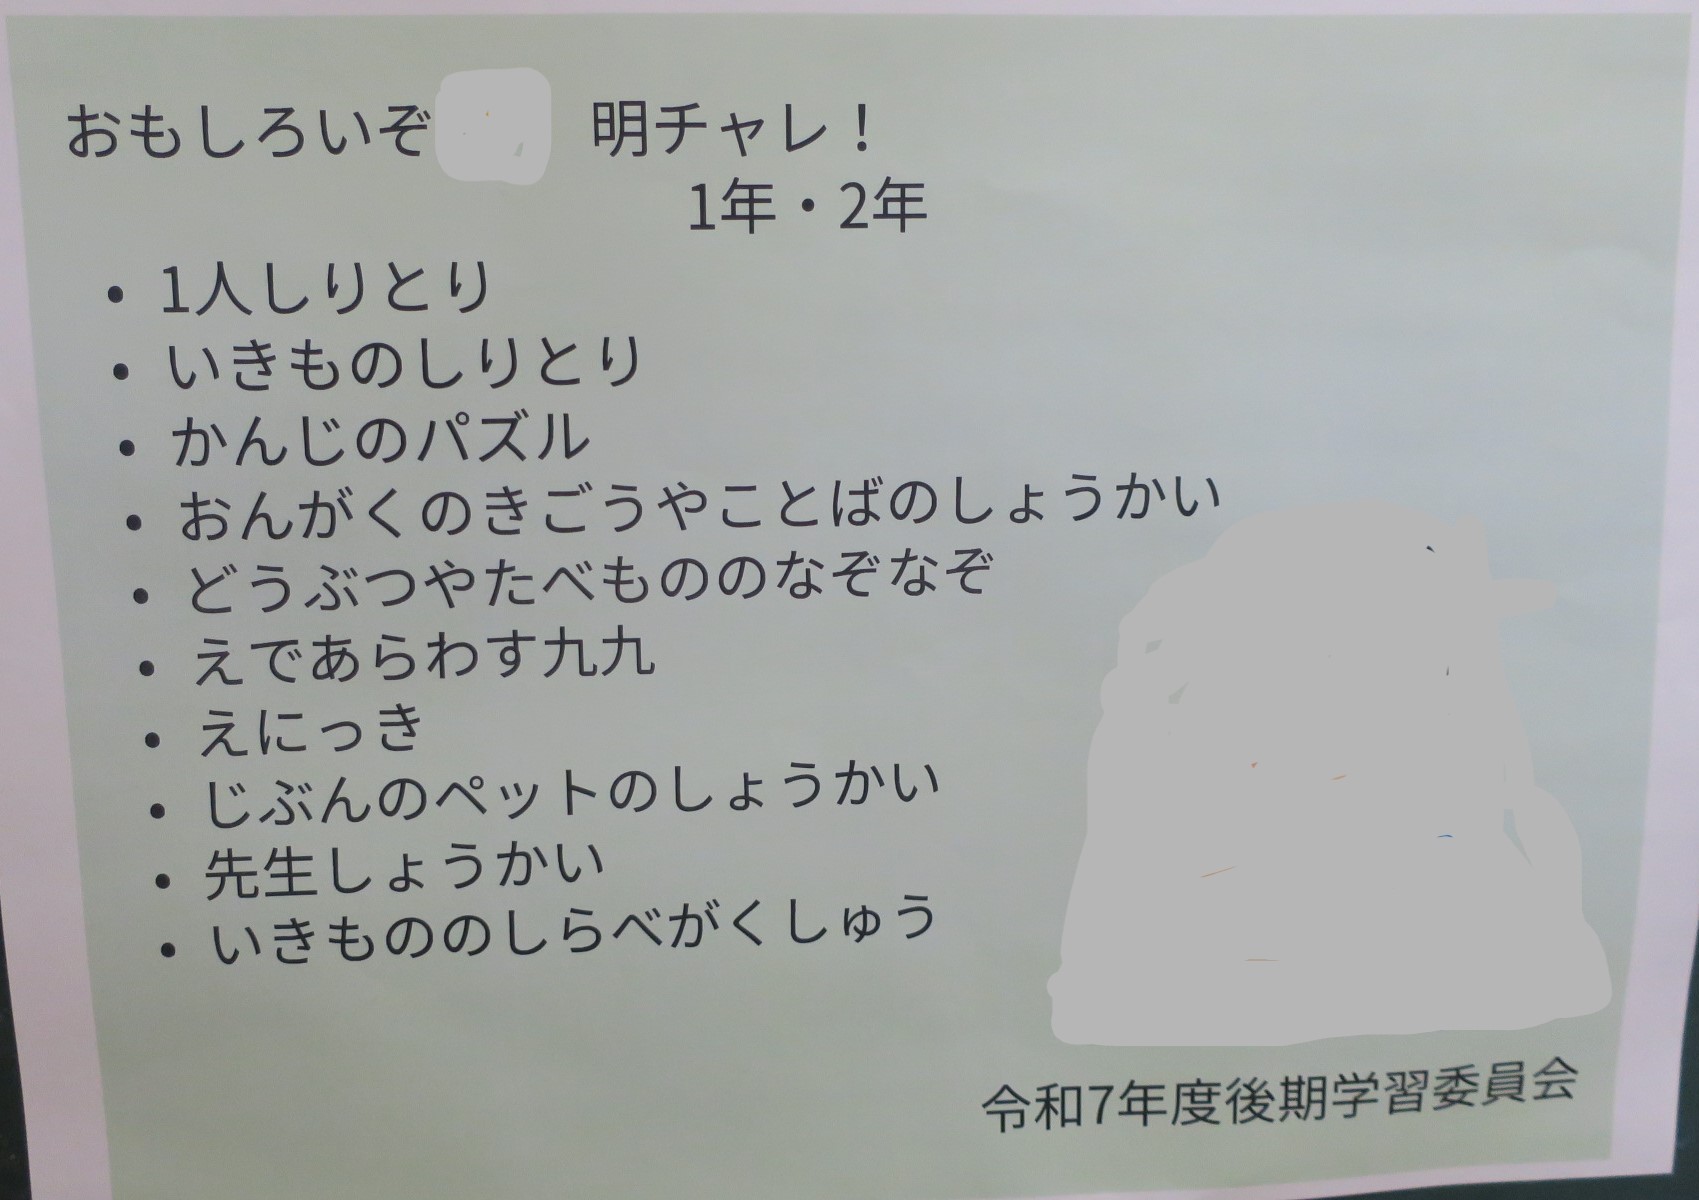 おもしろいぞ 明チャレ！
1年・2年
・1人しりとり
・いきものしりとり
・かんじのパズル
・おんがくのきごうやことばのしょうかい
・どうぶつやたべもののなぞなぞ
・えであらわす九九
・えにっき
・じぶんのペットのしょうかい
・先生しょうかい
・いきもののしらべがくしゅう
令和7年度後期学習委員会